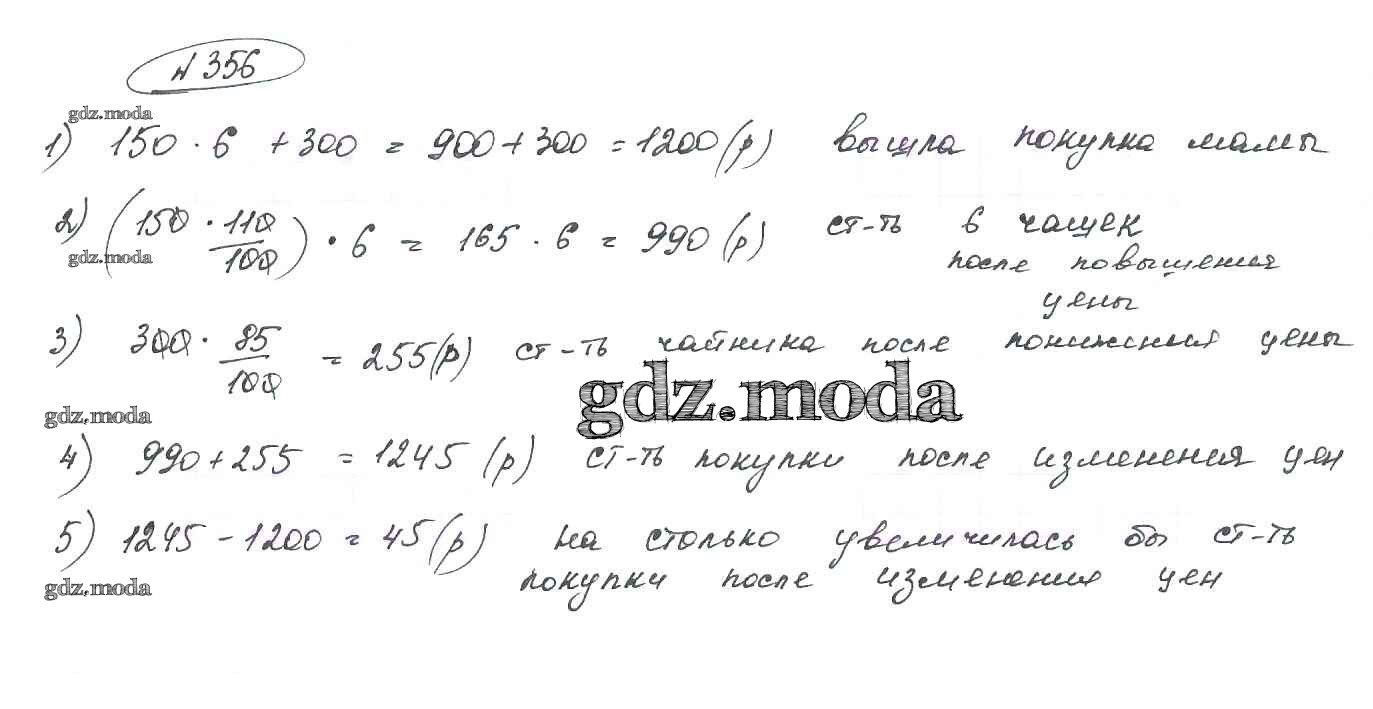 № 356
gdz.moda
1) 150 · 6 + 300 = 900 + 300 = 1200 (р) вышла покупка мамы
2) (150 · 110/100) · 6 = 165 · 6 = 990 (р) ст-ть 6 чашек
gdz.moda
после повышения
цены
3) 300 · 85/100 = 255 (р) ст-ть чайника после понижения цены
gdz.moda
gdz.moda
4) 990 + 255 = 1245 (р) ст-ть покупки после изменения цен
5) 1245 - 1200 = 45 (р) на столько увеличилась бы ст-ть
gdz.moda
покупки после изменения цен